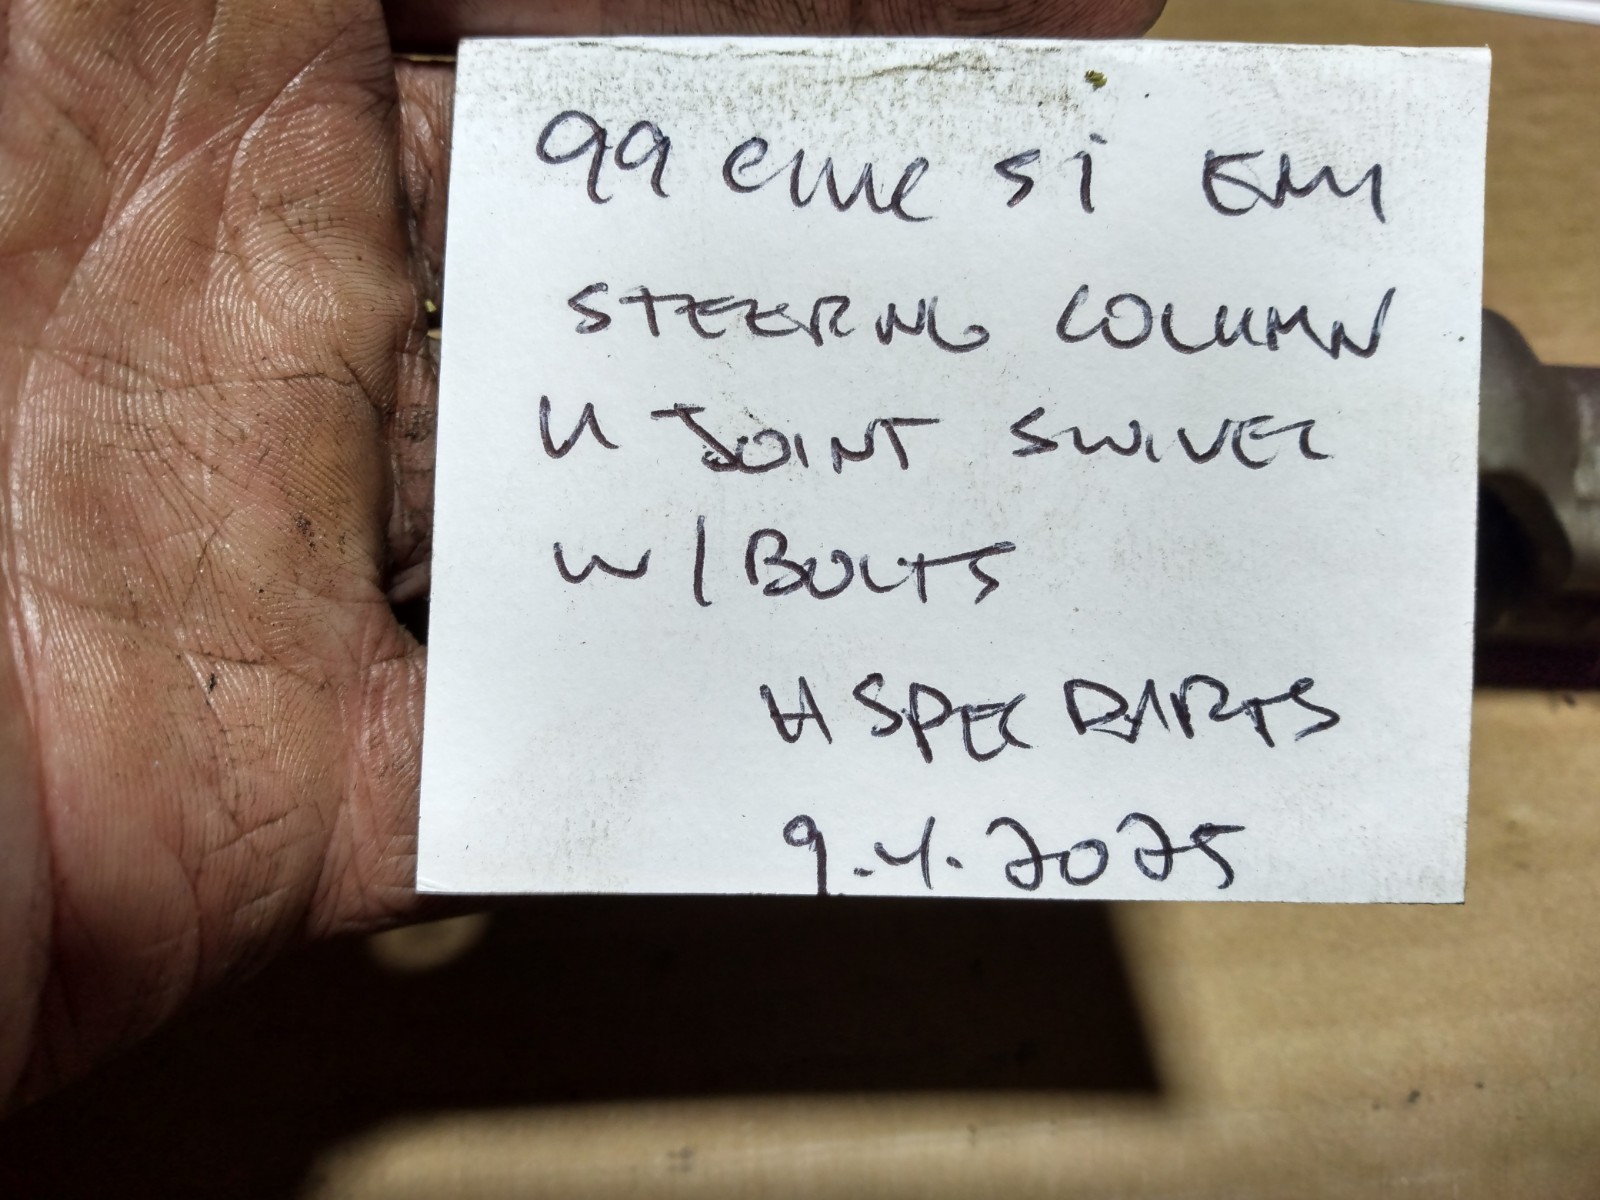 99 civic si EM1
STEERING COLUMN
U JOINT SWIVEL
W/BOLTS
H SPEC PARTS
9.4.2025